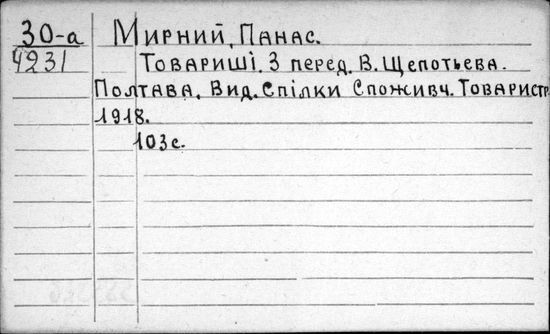 30-а Мирний, Панас.
4231 Товариші. З перед. В. Щепотьєва.
Полтава. Вид. Спілки Споживч. Товаристр
1918.
103с.